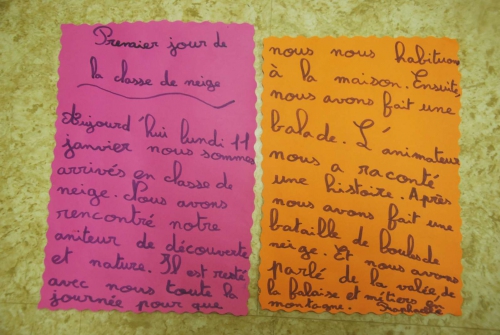 Premier jour de
la classe de neige
Aujourd'hui lundi 11
janvier nous sommes
arrivés en classe de
neige. Nous avons
rencontré notre
aniteur de découverte
et nature. Il est resté
avec nous toute la
journée pour que
nous nous habituons
à la maison. Ensuite,
nous avons fait une
balade. L'animateur
nous a raconté
une histoire. Après
nous avons fait une
bataille de boules de
neige. Et nous avons
parlé de la valée, de
la falaise et métiers de
montagne. Raphaëlle